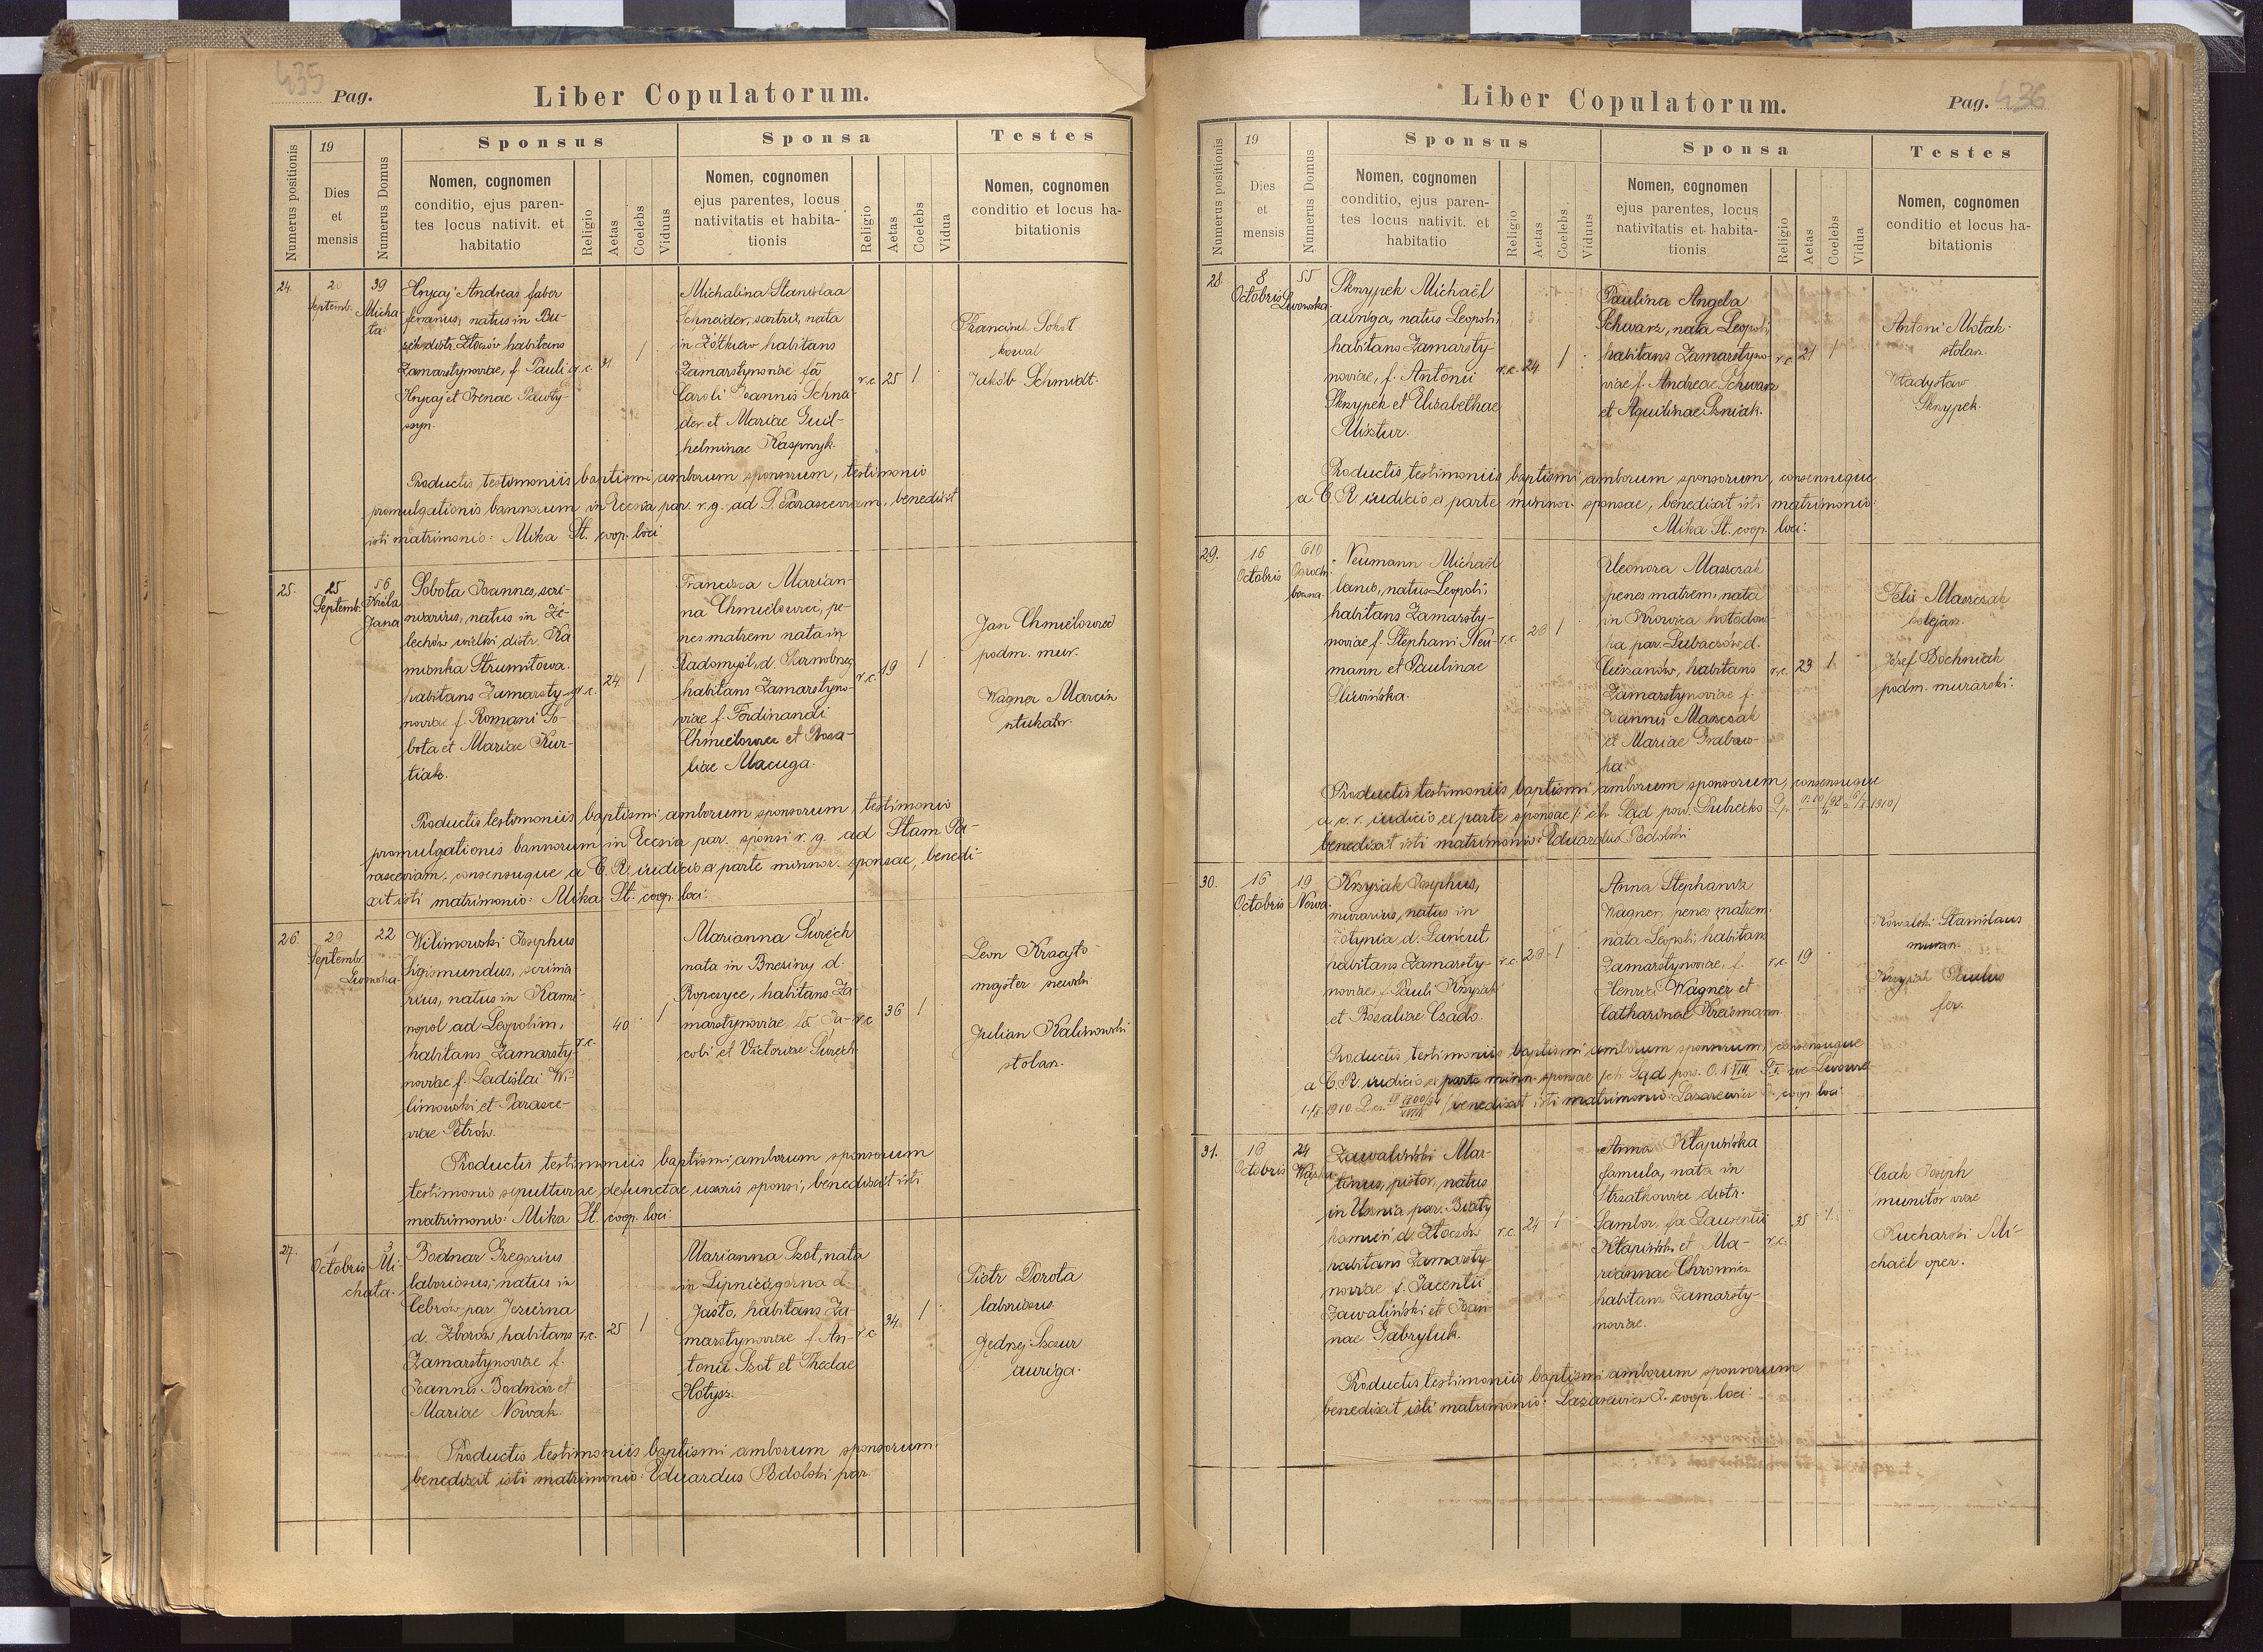 435 Pag.
Liber Copulatorum.
Numerus positionis
19
Dies
et
mensis
Numerus Domus
Sponsus
Nomen, cognomen
conditio, ejus paren-
tes locus nativit. et
habitatio
Religio
Aetas
Coelebs
Viduus
Sponsa
Nomen, cognomen
ejus parentes, locus
nativitatis et habita-
tionis
Religio
Aetas
Coelebs
Vidua
Testes
Nomen, cognomen
conditio et locus ha-
bitationis
24.
20
Septemb.
39
Micha-
ła
Hrycaj Andreas faber
ferrarius, natus in Bu-
distr. Złoczów habitans
Zamarstynoviae, f. Pauli
Hrycaj et Irenae Pawły-
szyn.
31
1
Michalina Stanislaa
Schneider, sartrix, nata
in Żółkiew habitans
Zamarstynoviae fa
Caroli Joannis Schnei-
der et Mariae Guil-
helminae Kasprzyk.
r.c.
25
1
kowal
Jakób Schmidt.
Productis testimoniis baptismi amborum sponsorum, testimonio
promulgationis bannorum in Eccsia par. r.g. ad S. Parasceviam, benedixit
isti matrimonio: Mika St. coop. loci
25.
25
Septemb.
56
Króla
Jana
Sobota Joannes, scri-
niarius, natus in Że-
lechów wielki distr. Ka-
mionka Strumiłowa.
habitans Zamarsty-
noviae f. Romani So-
bota et Mariae Kur-
tiak.
24
1
Francisca Marian-
na Chmielowiec, pe-
nes matrem nata in
Radomyśl, d. Tarnobrzeg
habitans Zamarstyno-
viae f. Ferdinandi
Chmielowiec et Rosa-
liae Macuga.
r.c.
19
1
Jan Chmielowiec
podm. mur.
Wagner Marcin
sztukator.
Productis testimoniis baptismi amborum sponsorum, testimonio
promulgationis bannorum in Eccsia par. sponsi r. g. ad Stam Pa-
rasceviam, consensuque a C. R. iudicio ex parte minnor. sponsae, benedi-
xit isti matrimonio: Mika St. coop. loci:
26.
29
Septembr.
22
Lwowska.
Wilimowski Josephus
Sigismundus, scrinia-
rius, natus in Kami-
nopol ad Leopolim,
habitans Zamarsty-
noviae f. Ladislai Wi-
limowski et Parasce-
viae Petrów.
r.c.
40
1
Marianna Świręch
nata in Brzeziny d.
Ropczyce, habitans Za-
marstynoviae, fa Ja-
cobi et Victoriae Świręch.
r.c.
36
1
Leon Krzasto
majster szewski
Julian Kalinowski
stolarz.
Productis testimoniis baptismi amborum sponsorum
testimonio sepulturae defunctae uxoris sponsi, benedixit isti
matrimonio: Mika St. coop. loci:
27.
1
Octobris
3
Mi-
chała.
Bodnar Gregorius
laboriosus, natus in
Cebrów par. Jezierna
d. Zborów habitans
Zamarstynoviae f.
Joannis Bodnar et
Mariae Nowak.
r.c.
25
1
Marianna Szot, nata
in Lipnica górna d.
Jasło, habitans Za-
marstynoviae f. An-
tonii Szot et Theclae
Hołysz.
r.c.
34
1
Piotr Dorota
laboriosus.
Jędrzej Szczur
auriga.
Productis testimoniis baptismi amborum sponsorum.
benedixit isti matrimonio: Eduardus Podolski par.
Liber Copulatorum.
Pag. 436
Numerus positionis
19
Dies
et
mensis
Numerus Domus
Sponsus
Nomen, cognomen
conditio, ejus paren-
tes locus nativit. et
habitatio
Religio
Aetas
Coelebs
Viduus
Sponsa
Nomen, cognomen
ejus parentes, locus
nativitatis et habita-
tionis
Religio
Aetas
Coelebs
Vidua
Testes
Nomen, cognomen
conditio et locus ha-
bitationis
28.
8
Octobris
55
Lwowska
Skrzypek Michaël
auriga, natus Leopoli,
habitans Zamarsty-
noviae, f. Antonii
Skrzypek et Elisabethae
Misztur.
r.c.
24
1
Paulina Angela
Schwarz, nata Leopoli,
habitans Zamarstyno-
viae f. Andreae Schwarz
et Aquilinae
r.c.
21
1
Antoni Motak.
stolarz.
Władysław
Skrzypek.
Productis testimoniis baptismi amborum sponsorum, consensuque
a C. R. iudicio ex parte minnor. sponsae, benedixit isti matrimonio:
Mika St. coop. loci:
29.
16
Octobris
610
Neumann Michaël
lanio, natus Leopoli,
habitans Zamarsty-
noviae f. Stephani Neu-
mann et Paulinae
Śliwińska.
r.c.
28
1
Eleonora Maszczak
penes matrem, nata
in Krowica hołodow-
ska par. Lubaczów, d.
Cieszanów, habitans
Zamarstynoviae f.
Joannis Maszczak
et Mariae Grabow-
ska.
r.c.
23
1
Maszczak
kolejarz.
Józef Bochniak
podm. murarski.
Productis testimoniis baptismi amborum sponsorum, consensuque
a c. r. iudicio ex parte sponsae /: ck. Sąd pow. Dubiecko
benedixit isti matrimonio: Eduardus Podolski
30.
16
Octobris
19
Nowa.
Krzysiak Josephus,
murarius, natus in
Żołynia d. Łańcut
habitans Zamarsty-
noviae f. Pauli Krzysiak
et Rosaliae Czado.
r.c.
28
1
Anna Stephania
Wagner, penes matrem
nata Leopoli, habitans
Zamarstynoviae, f.
Henrici Wagner et
Catharinae Kreismann.
r.c.
19
Kowalski Stanislaus
murar.
Krzysiak Paulus
fer.
Productis testimoniis baptismi amborum sponsorum, consensuque
a C. R. iudicio ex parte minn. sponsae /ck. Sąd pow.
benedixit isti matrimonio: Lazarewicz coop. loci
31.
18
Octobris
24
Wąska
Zawaliński Mar-
tinus, pistor, natus
in Usznia par. Biały
kamień d. Złoczów
habitans Zamarsty-
noviae f. Jacentii
Zawaliński et Joan-
nae Gabryluk.
r.c.
24
1
Anna Kłapińska
famula, nata in
Strzałkowice distr.
Sambor, fa Laurentii
Kłapiński et Ma-
riannae Chromicz
habitans Zamarsty-
noviae.
r.c.
35
1
Czak Joseph
munitor viae
Kucharski Mi-
chaël oper.
Productis testimoniis baptismi amborum sponsorum
benedixit isti matrimonio: Lazarewicz coop. loci: